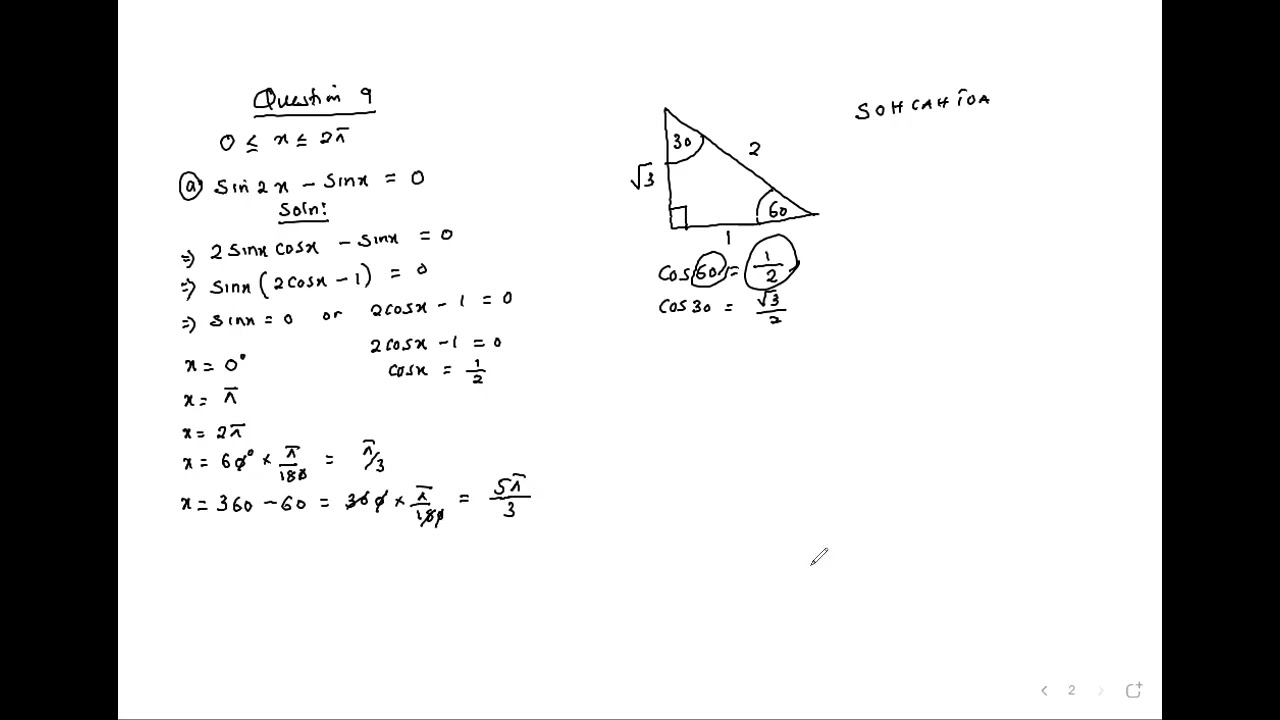 Question 9
0 ≤ x ≤ 2π
(a) Sin2x - Sinx = 0
Soln:
=> 2Sinx Cosx - Sinx = 0
=> Sinx (2Cosx - 1) = 0
=> Sinx = 0 or 2Cosx - 1 = 0
2Cosx - 1 = 0
x = 0°
Cosx = 1/2
x = π
x = 2π
x = 60° × π/180 = π/3
x = 360 - 60 = 300 × π/180 = 5π/3
SOHCAHTOA
30
2
√3
60
1
Cos 60 = 1/2
Cos 30 = √3/2
2